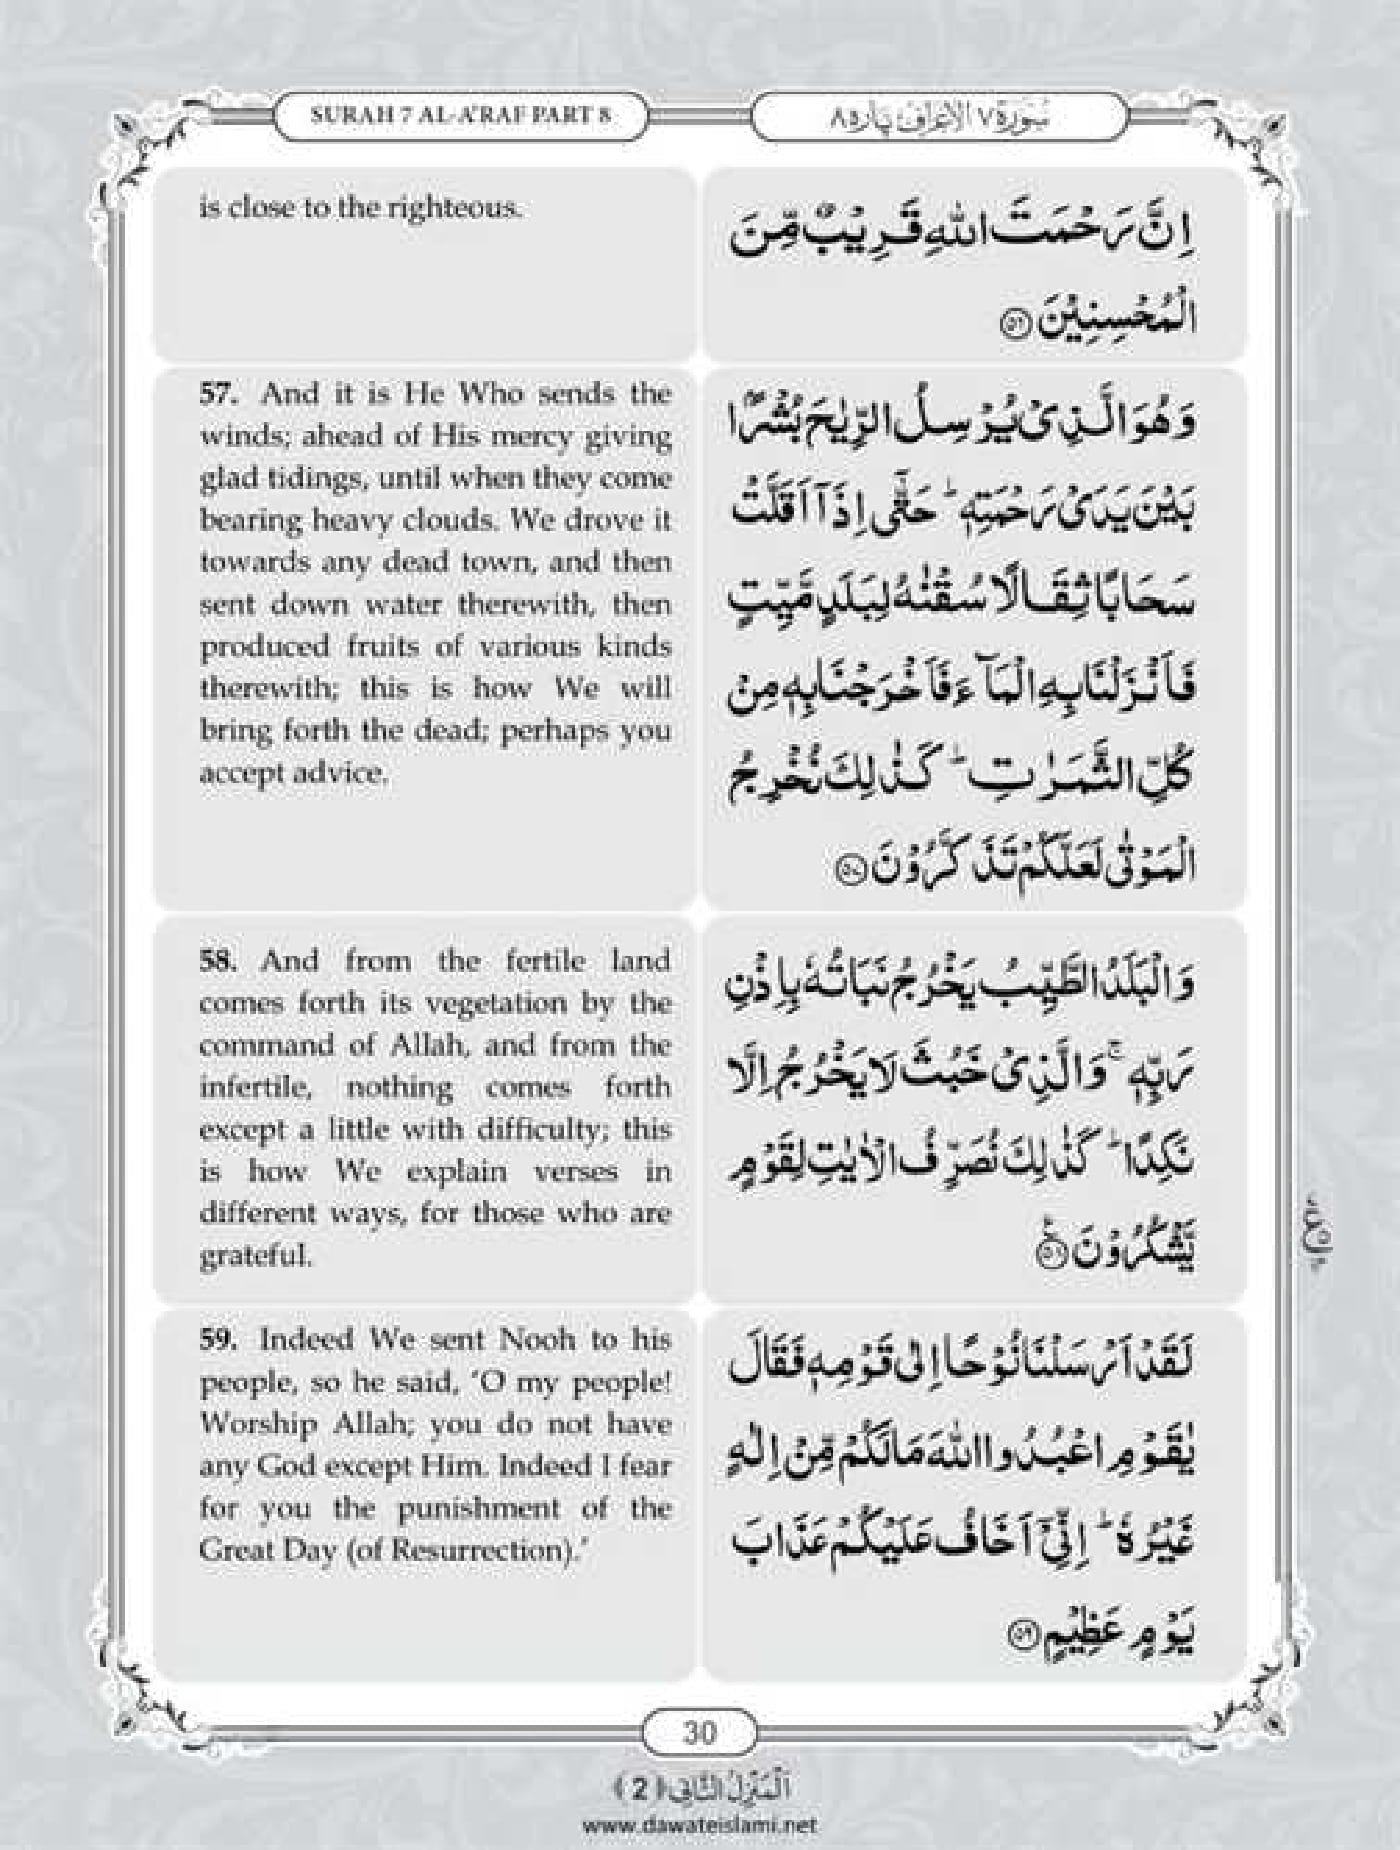 SURAH 7 AL-A'RAF PART 8
سُوْرَة ٧ الْاَعْرَاف پاره ٨
is close to the righteous.
اِنَّ رَحْمَتَ اللّٰهِ قَرِیْبٌ مِّنَ
الْمُحْسِنِیْنَ ۝۵۶
57. And it is He Who sends the
winds; ahead of His mercy giving
glad tidings, until when they come
bearing heavy clouds. We drove it
towards any dead town, and then
sent down water therewith, then
produced fruits of various kinds
therewith; this is how We will
bring forth the dead; perhaps you
accept advice.
وَ هُوَ الَّذِیْ یُرْسِلُ الرِّیٰحَ بُشْرًۢا
بَیْنَ یَدَیْ رَحْمَتِهٖ ؕ حَتّٰۤی اِذَاۤ اَقَلَّتْ
سَحَابًا ثِقَالًا سُقْنٰهُ لِبَلَدٍ مَّیِّتٍ
فَاَنْزَلْنَا بِهِ الْمَآءَ فَاَخْرَجْنَا بِهٖ مِنْ
كُلِّ الثَّمَرٰتِ ؕ كَذٰلِكَ نُخْرِجُ
الْمَوْتٰی لَعَلَّكُمْ تَذَكَّرُوْنَ ۝۵۷
58. And from the fertile land
comes forth its vegetation by the
command of Allah, and from the
infertile, nothing comes forth
except a little with difficulty; this
is how We explain verses in
different ways, for those who are
grateful.
وَ الْبَلَدُ الطَّیِّبُ یَخْرُجُ نَبَاتُهٗ بِاِذْنِ
رَبِّهٖ ۚ وَ الَّذِیْ خَبُثَ لَا یَخْرُجُ اِلَّا
نَكِدًا ؕ كَذٰلِكَ نُصَرِّفُ الْاٰیٰتِ لِقَوْمٍ
یَّشْكُرُوْنَ ۝۵۸
59. Indeed We sent Nooh to his
people, so he said, 'O my people!
Worship Allah; you do not have
any God except Him. Indeed I fear
for you the punishment of the
Great Day (of Resurrection).'
لَقَدْ اَرْسَلْنَا نُوْحًا اِلٰی قَوْمِهٖ فَقَالَ
یٰقَوْمِ اعْبُدُوا اللّٰهَ مَا لَكُمْ مِّنْ اِلٰهٍ
غَیْرُهٗ ؕ اِنِّیْۤ اَخَافُ عَلَیْكُمْ عَذَابَ
یَوْمٍ عَظِیْمٍ ۝۵۹
30
اَلْمَنْزِلُ الثَّانِی ﴿2﴾
www.dawateislami.net